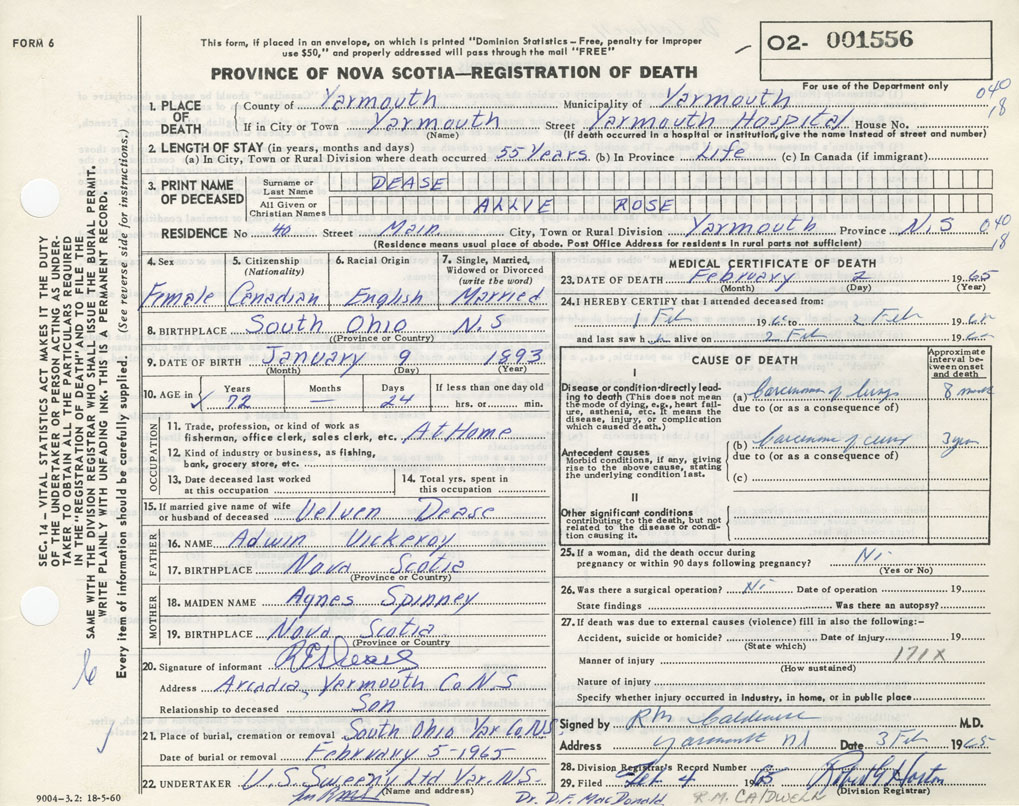 FORM 6
This form, if placed in an envelope, on which is printed "Dominion Statistics - Free, penalty for improper
use $50," and properly addressed will pass through the mail "FREE"
PROVINCE OF NOVA SCOTIA—REGISTRATION OF DEATH
O2- 001556
For use of the Department only
040
18
1. PLACE OF DEATH
County of Yarmouth Municipality of Yarmouth
If in City or Town Yarmouth Street Yarmouth Hospital House No.
(Name) (If death occurred in a hospital or institution, give the name instead of street and number)
2. LENGTH OF STAY (in years, months and days)
(a) In City, Town or Rural Division where death occurred 55 Years (b) In Province Life (c) In Canada (if immigrant)
3. PRINT NAME OF DECEASED
Surname or Last Name DEASE
All Given or Christian Names ALLIE ROSE
RESIDENCE No 40 Street Main City, Town or Rural Division Yarmouth Province N.S 040
18
(Residence means usual place of abode. Post Office Address for residents in rural parts not sufficient)
4. Sex Female
5. Citizenship (Nationality) Canadian
6. Racial Origin English
7. Single, Married, Widowed or Divorced (write the word) Married
8. BIRTHPLACE South Ohio N.S
(Province or Country)
9. DATE OF BIRTH January 9 1893
(Month) (Day) (Year)
10. AGE in Years 72 Months — Days 24 If less than one day old hrs. or min.
OCCUPATION
11. Trade, profession, or kind of work as
fisherman, office clerk, sales clerk, etc. At Home
12. Kind of industry or business, as fishing,
bank, grocery store, etc.
13. Date deceased last worked
at this occupation
14. Total yrs. spent in
this occupation
15. If married give name of wife
or husband of deceased Velven Dease
FATHER
16. NAME Adwin Vickeroy
17. BIRTHPLACE Nova Scotia
(Province or Country)
MOTHER
18. MAIDEN NAME Agnes Spinney
19. BIRTHPLACE Nova Scotia
(Province or Country
20. Signature of informant
Address Arcadia, Yarmouth Co N.S
Relationship to deceased Son
21. Place of burial, cremation or removal South Ohio Yar Co N.S.
Date of burial or removal February 5-1965
22. UNDERTAKER V.S. Sweeny Ltd Yar. N.S.
(Name and address)
MEDICAL CERTIFICATE OF DEATH
23. DATE OF DEATH February 2 1965
(Month) (Day) (Year)
24. I HEREBY CERTIFY that I attended deceased from:
1 Feb 1965 to 2 Feb 1965
and last saw h alive on 2 Feb 19
CAUSE OF DEATH
Approximate interval between onset and death
I
Disease or condition directly leading to death (This does not mean the mode of dying, e.g., heart failure, asthenia, etc. It means the disease, injury, or complication which caused death.)
(a) Carcinoma of lungs 8 months
due to (or as a consequence of)
Antecedent causes
Morbid conditions, if any, giving rise to the above cause, stating the underlying condition last.
(b) Carcinoma of 3 years
due to (or as a consequence of)
(c)
II
Other significant conditions
contributing to the death, but not related to the disease or condition causing it.
25. If a woman, did the death occur during
pregnancy or within 90 days following pregnancy? No
(Yes or No)
26. Was there a surgical operation? No Date of operation 19
State findings Was there an autopsy?
27. If death was due to external causes (violence) fill in also the following:-
Accident, suicide or homicide? Date of injury 19
(State which)
Manner of injury 171X
(How sustained)
Nature of injury
Specify whether injury occurred in industry, in home, or in public place
Signed by RM Caldwell M.D.
Address Yarmouth NS Date 3 Feb 1965
28. Division Registrar's Record Number
29. Filed Feb 4 1965 Robert G Horton
(Division Registrar)
9004-3.2: 18-5-60
Dr. D.F. MacDonald R.M. CALDWELL
SEC. 14 – VITAL STATISTICS ACT MAKES IT THE DUTY
OF THE UNDERTAKER OR PERSON ACTING AS UNDER-
TAKER TO OBTAIN ALL THE PARTICULARS REQUIRED
IN THE "REGISTRATION OF DEATH" AND TO FILE THE
SAME WITH THE DIVISION REGISTRAR WHO SHALL ISSUE THE BURIAL PERMIT.
WRITE PLAINLY WITH UNFADING INK. THIS IS A PERMANENT RECORD.
Every item of information should be carefully supplied. (See reverse side for instructions.)